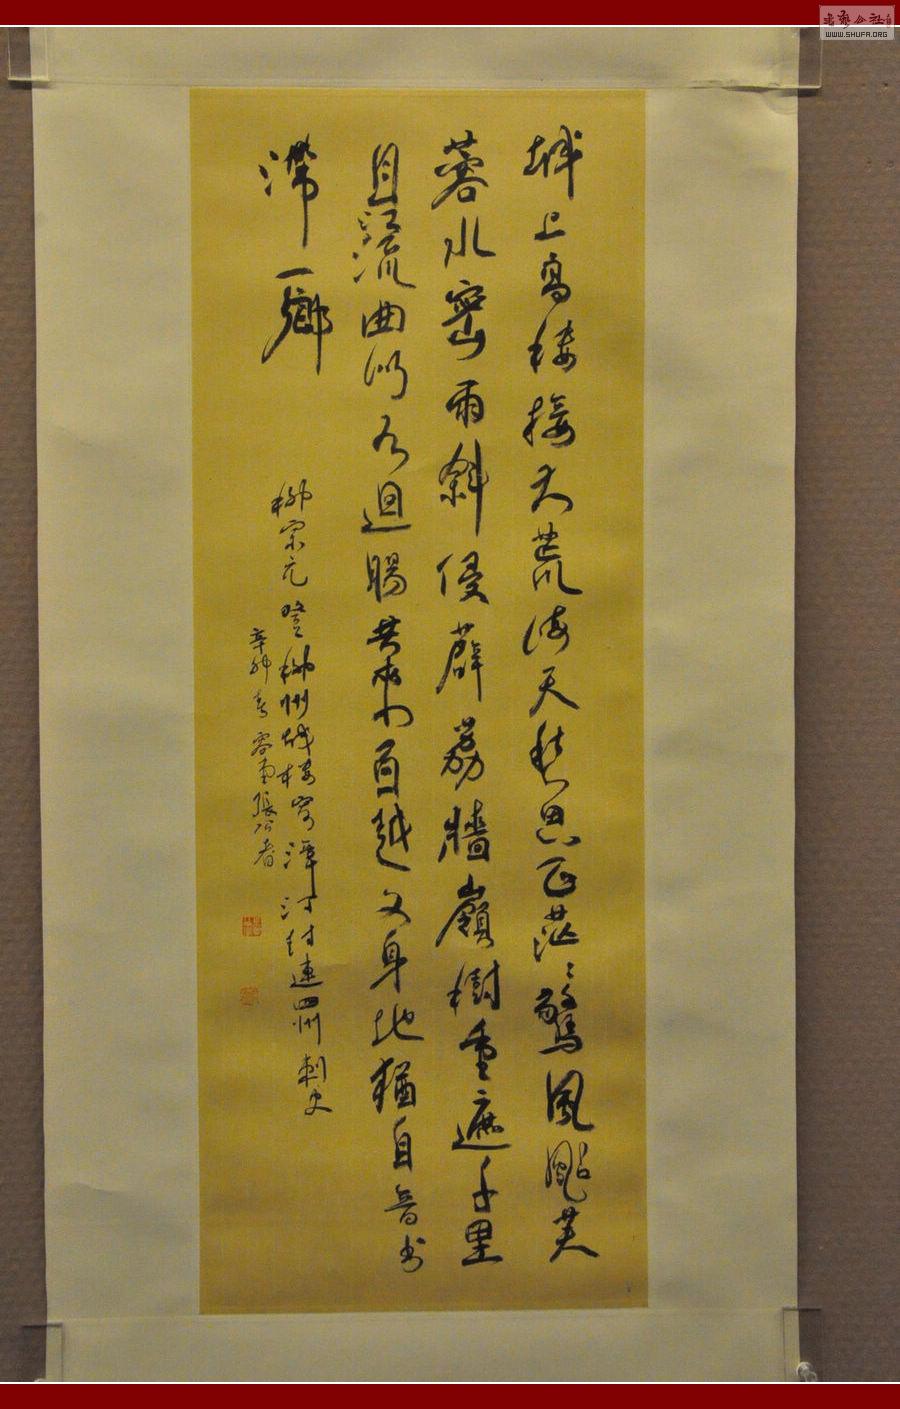 城上高樓接大荒海天愁思正茫〻驚風颭芙
蓉水密雨斜侵薜荔牆嶺樹重遮千里
目江流曲似九迴腸共來百越文身地猶自音書
滯一鄉
柳宗元登柳州城樓寄漳汀封連四州刺史
辛卯春容南張公者
WWW.SHUFA.ORG